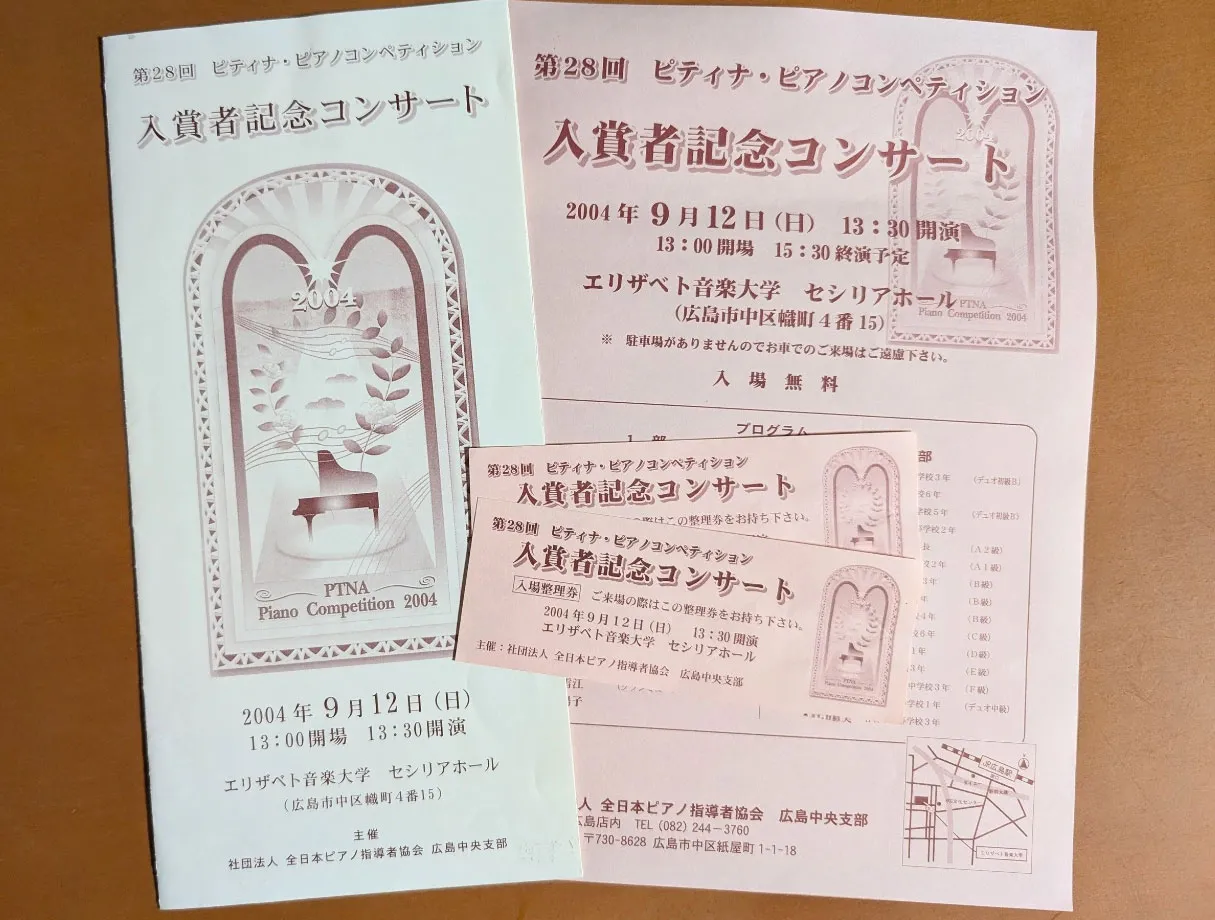 第28回 ピティナ・ピアノコンペティション
入賞者記念コンサート
2004
PTNA
Piano Competition 2004
2004年9月12日(日)
13:00開場 13:30開演
エリザベト音楽大学 セシリアホール
(広島市中区幟町4番15)
主催
社団法人 全日本ピアノ指導者協会 広島中央支部
第28回 ピティナ・ピアノコンペティション
入賞者記念コンサート
2004
2004年9月12日(日) 13:30開演
13:00開場 15:30終演予定
エリザベト音楽大学 セシリアホール
(広島市中区幟町4番15)
PTNA
Piano Competition 2004
※ 駐車場がありませんのでお車でのご来場はご遠慮下さい。
入場無料
プログラム
1 部
部
学校3年 (デュオ初級B)
校6年
学校5年 (デュオ初級B)
学校2年
長 (A2級)
校2年 (A1級)
年 (B級)
年 (B級)
校4年 (B級)
校6年 (C級)
1年 (D級)
3年 (E級)
中学校3年 (F級)
学校1年 (デュオ中級)
学校3年
第28回 ピティナ・ピアノコンペティション
入賞者記念コンサート
の際はこの整理券をお持ち下さい。
第28回 ピティナ・ピアノコンペティション
入賞者記念コンサート
入場整理券 ご来場の際はこの整理券をお持ち下さい。
2004年9月12日(日) 13:30開演
エリザベト音楽大学 セシリアホール
主催:社団法人 全日本ピアノ指導者協会 広島中央支部
PTNA
Piano Competition 2004
JR広島駅
エリザベト音楽大学
人 全日本ピアノ指導者協会 広島中央支部
広島店内 TEL (082) 244-3760
〒730-8628 広島市中区紙屋町1-1-18